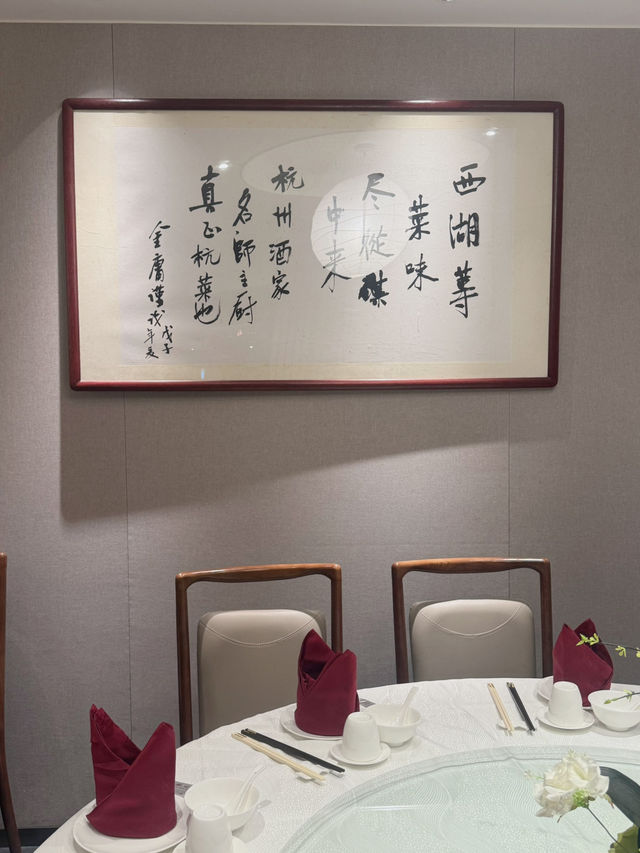 西湖蓴
菜味
尽從碟
中来
杭州酒家
名師主厨
真正杭菜也
金庸謹识
戊子
年夏